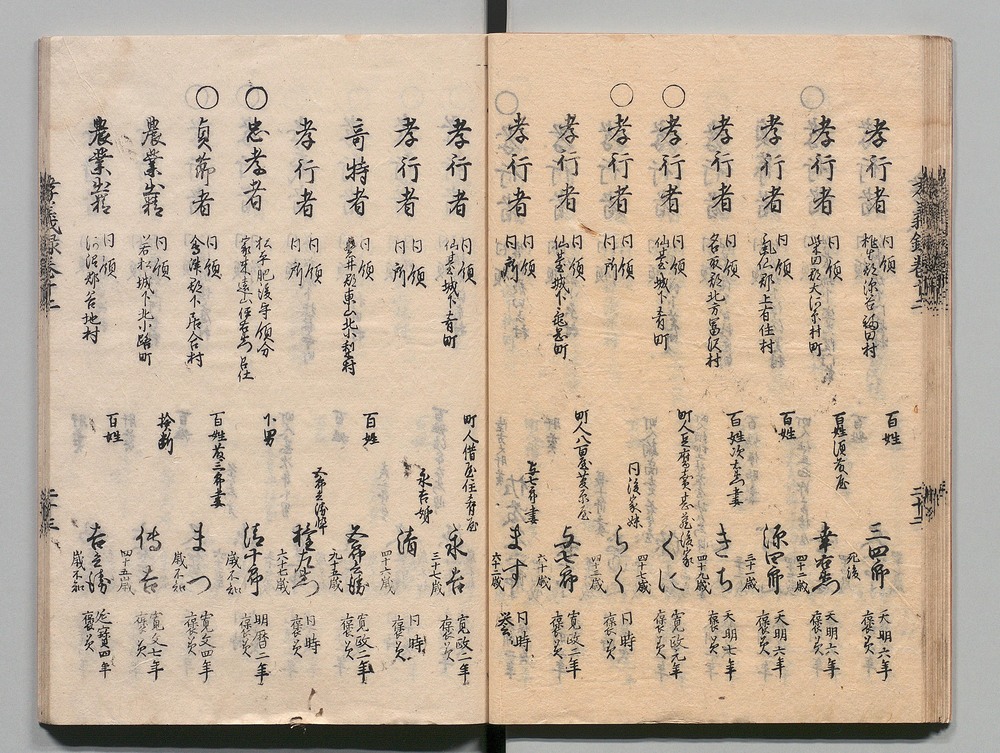 孝行者 同領 桃生郡深谷福田村 百姓 三四郎 死後 天明六年 褒美
孝行者 同領 柴田郡大河原村町 百姓須藤屋 幸右衛門 四十二歳 天明六年 褒美
孝行者 同領 気仙郡上有住村 百姓 源四郎 三十歳 天明六年 褒美
孝行者 同領 名取郡北方富沢村 百姓次太夫妻 きち 四十九歳 天明七年 褒美
孝行者 同領 仙台城下青町 町人豆腐売忠蔵後家 くに 四十七歳 寛政元年 褒美
孝行者 同領 同所 同後家妹 らく 四十二歳 同時 褒美
孝行者 同領 仙台城下 町人八百屋 与七郎 六十歳 寛政二年 褒美
孝行者 同領 同所 与七郎妻 ます 六十二歳 同時 褒美
孝行者 同領 仙台城下青町 町人借屋住肴屋 永吉 三十七歳 寛政二年 褒美
孝行者 同領 同所 永吉姉 清 四十六歳 同時 褒美
奇特者 同領 磐井郡東山北小梨村 百姓 九十五歳 寛政二年 褒美
孝行者 同領 同所 六十三歳 同時 褒美
忠孝者 松平肥後守領分 家来遠山伊右衛門召仕 下男 清十郎 歳不知 明暦二年 褒美
貞節者 同領 会津郡下居合村 百姓藤三郎妻 まつ 歳不知 寛文四年 褒美
農業出精 同領 若松城下北小路町 検断 傳吉 四十五歳 寛文七年 褒美
農業出精 同領 河沼郡谷地村 百姓 吉之勝 歳不知 延宝四年 褒美